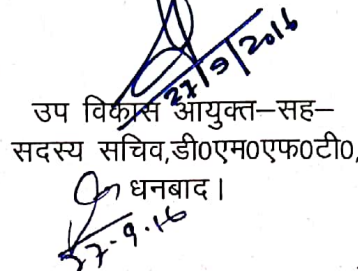 27/9/2016
उप विकास आयुक्त–सह–
सदस्य सचिव,डी0एम0एफ0टी0,
धनबाद।
27.9.16